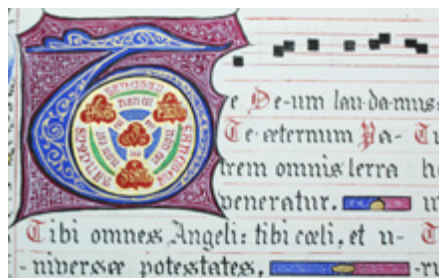 Te De-um lau-da-mus
Te æternum Pa- Tu
trem omnis terra
veneratur.
Tibi omnes Angeli: tibi cœli, et u-
-niversæ potestates,